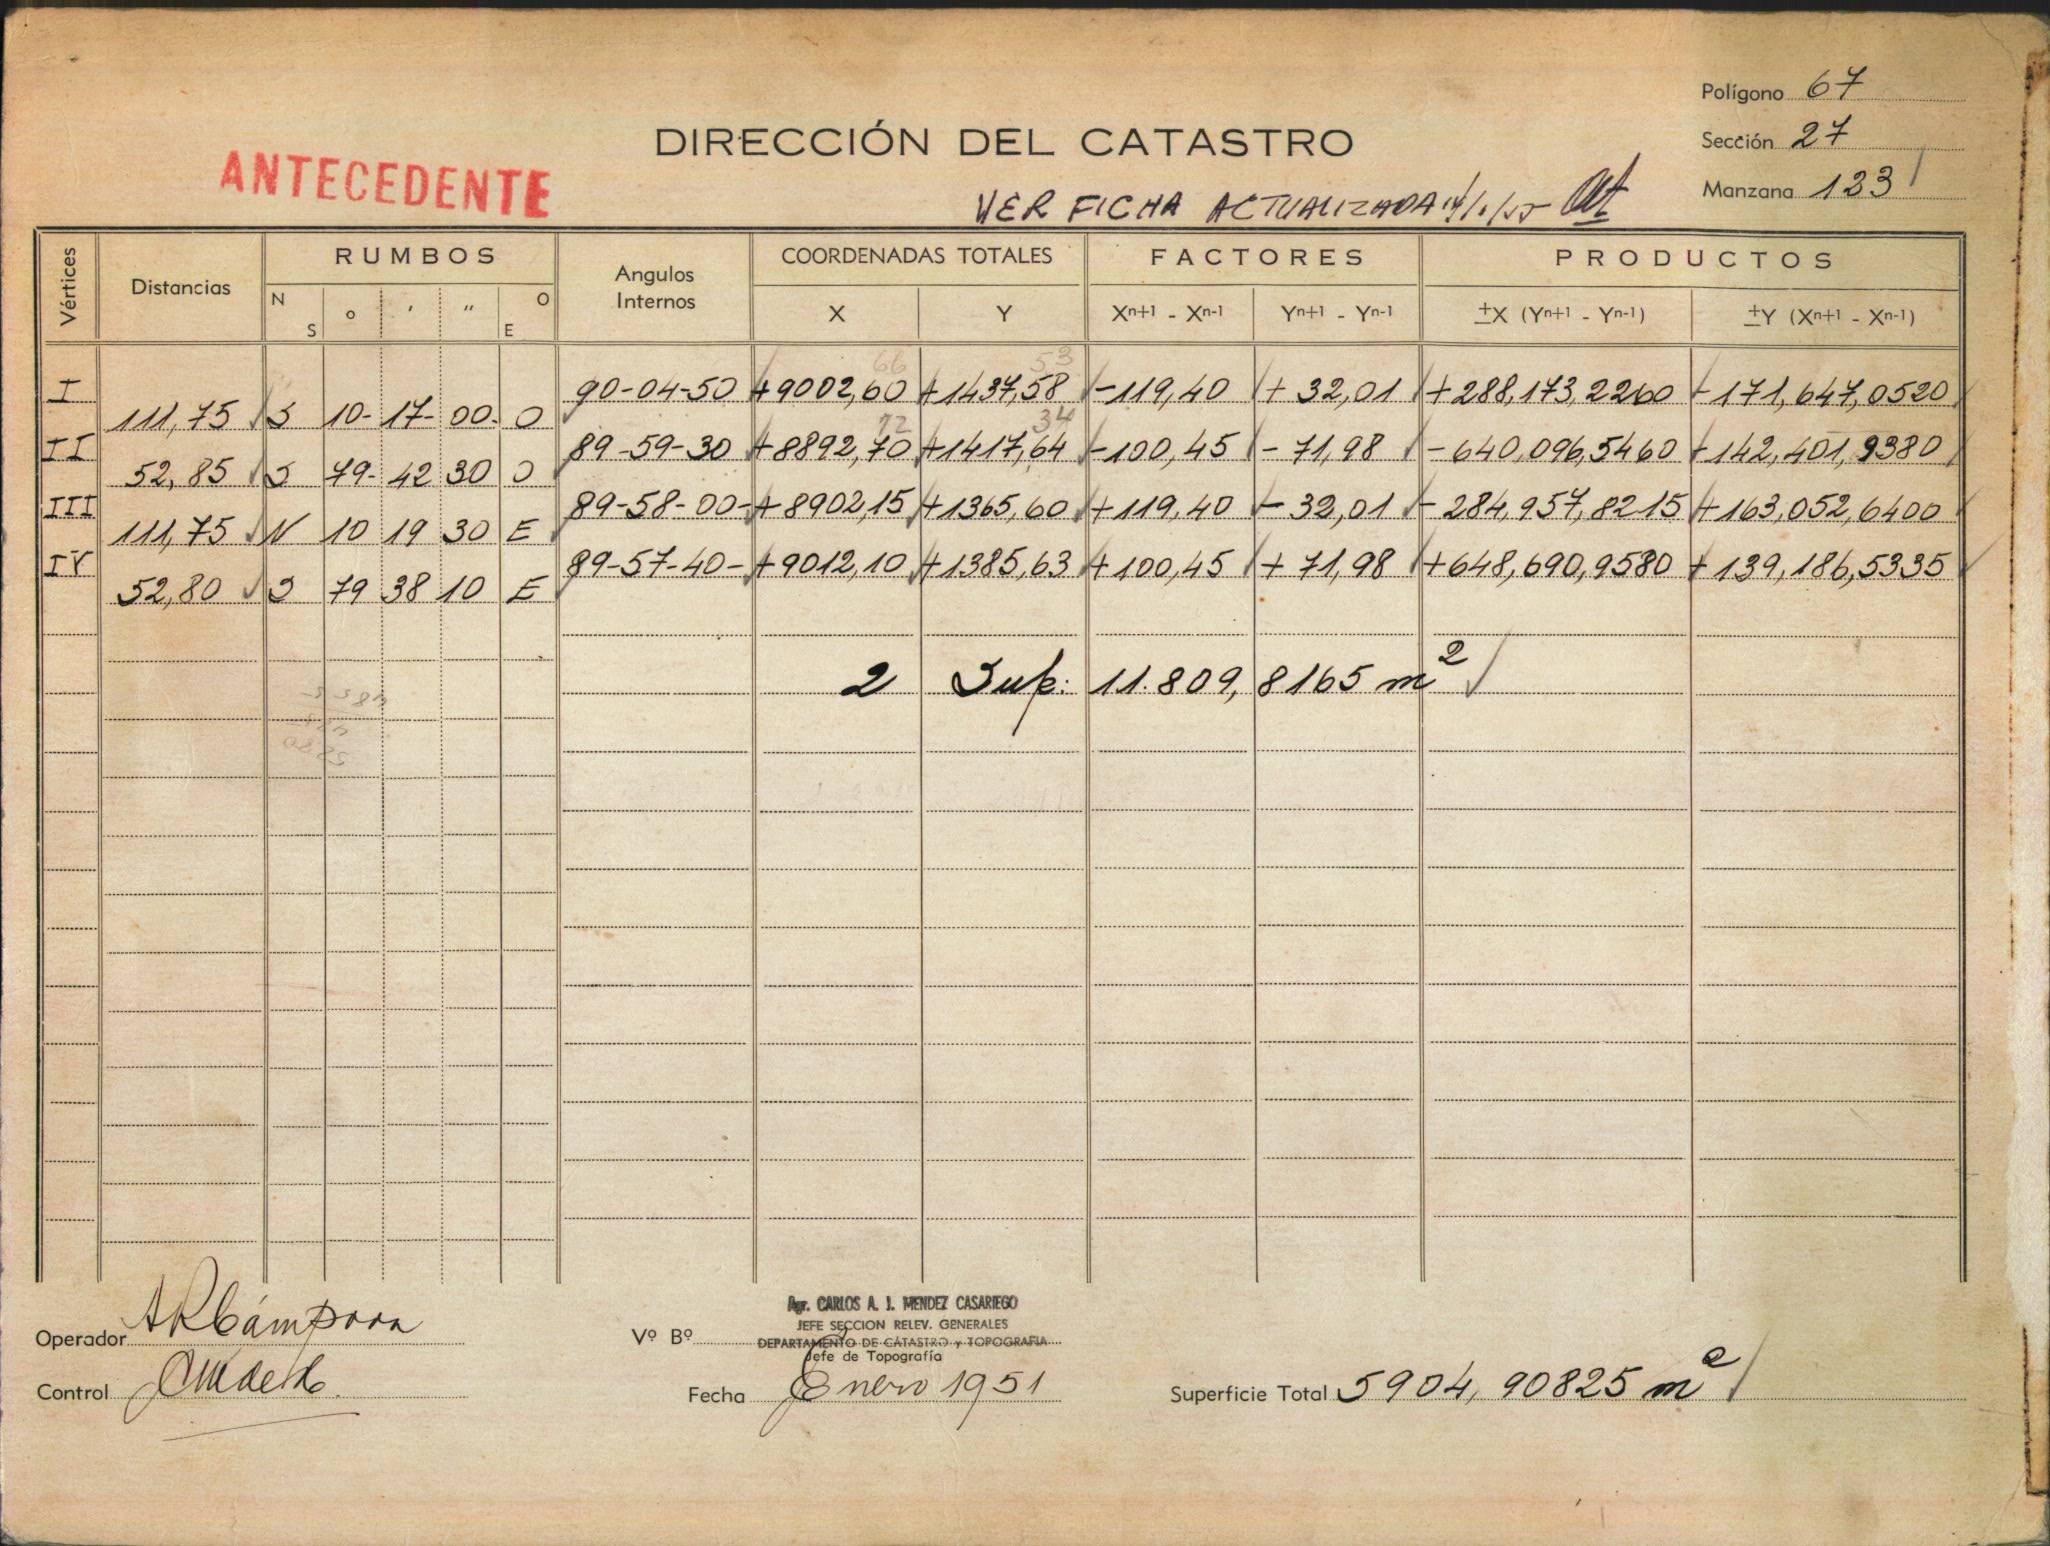 Polígono 67
DIRECCIÓN DEL CATASTRO
Sección 27
ANTECEDENTE
Manzana 123
VER FICHA ACTUALIZADA
Vértices Distancias RUMBOS Angulos Internos COORDENADAS TOTALES FACTORES PRODUCTOS
N S ° ' " O E X Y Xn+1 - Xn-1 Yn+1 - Yn-1 ±X (Yn+1 - Yn-1) ±Y (Xn+1 - Xn-1)
66 53
I 90-04-50 +9002,60 +1437,58 -119,40 + 32,01 +288,173,2260 -171,647,0520
111,75 S 10- 17- 00- O
72 34
II 89-59-30 +8892,70 +1417,64 -100,45 - 71,98 -640,096,5460 -142,401,9380
52,85 S 79- 42 30 O
III 89-58-00- +8902,15 +1365,60 +119,40 - 32,01 -284,957,8215 +163,052,6400
111,75 N 10 19 30 E
IV 89-57-40- +9012,10 +1385,63 +100,45 + 71,98 +648,690,9580 +139,186,5335
52,80 S 79 38 10 E
2 Sup: 11.809,8165 m2
Agr. CARLOS A. J. MENDEZ CASARIEGO
JEFE SECCION RELEV. GENERALES
Operador Vº Bº DEPARTAMENTO DE CATASTRO y TOPOGRAFIA
Jefe de Topografía
Control Fecha Enero 1951 Superficie Total 5904,90825 m2